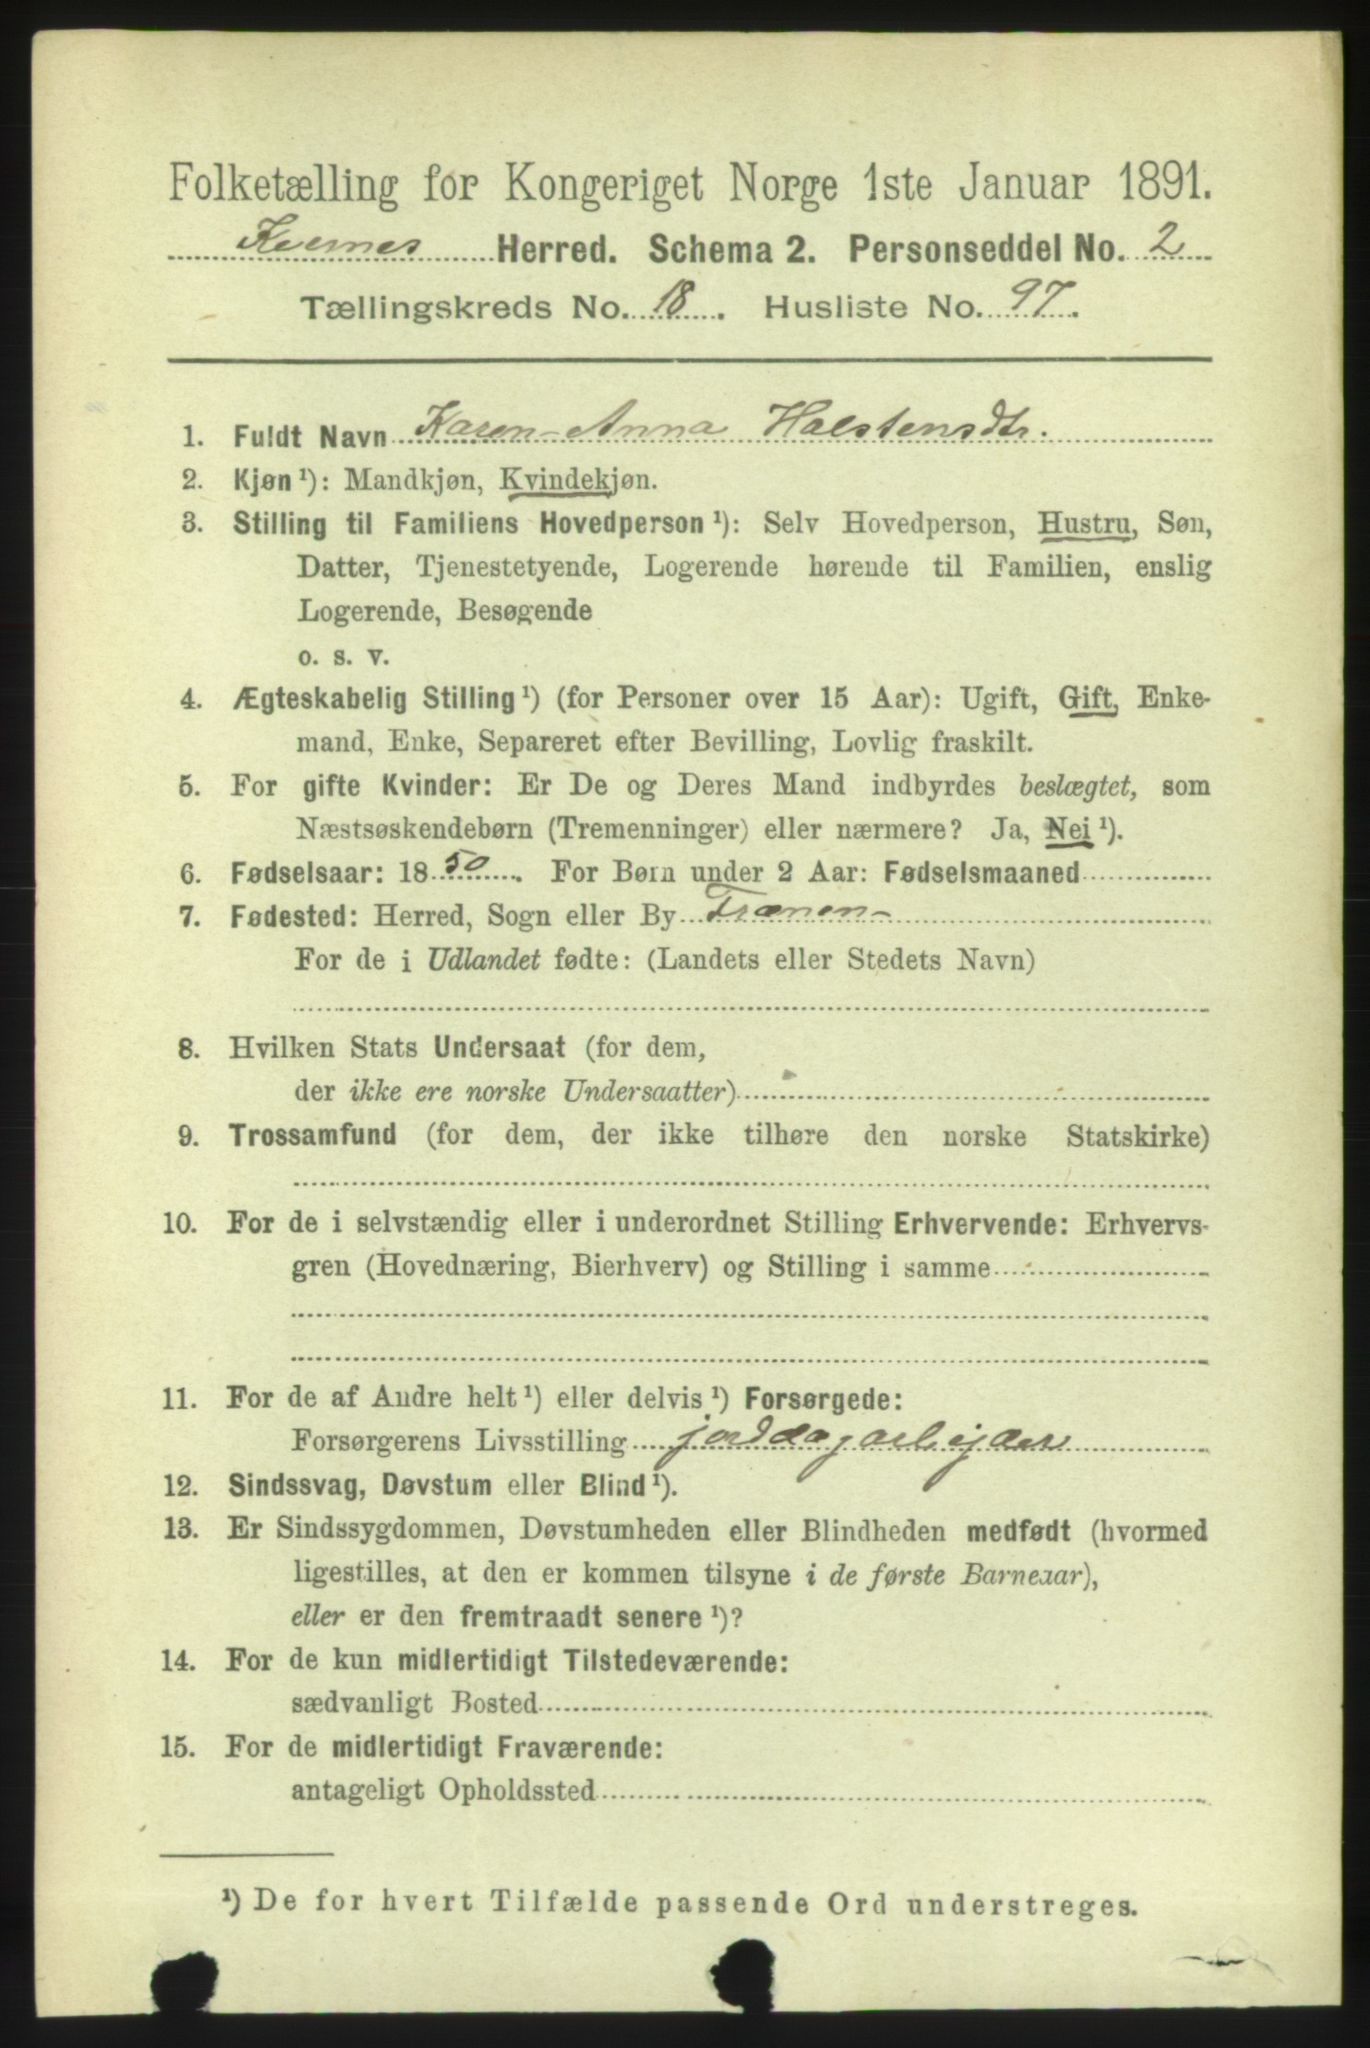 Folketælling for Kongeriget Norge 1ste Januar 1891.
Kvernes Herred. Schema 2. Personseddel No. 2
Tællingskreds No. 18. Husliste No. 97.
1. Fuldt Navn Karen-Anna Halstensdtr.
2. Kjøn ¹): Mandkjøn, Kvindekjøn.
3. Stilling til Familiens Hovedperson ¹): Selv Hovedperson, Hustru, Søn,
Datter, Tjenestetyende, Logerende hørende til Familien, enslig
Logerende, Besøgende
o. s. v.
4. Ægteskabelig Stilling ¹) (for Personer over 15 Aar): Ugift, Gift, Enke-
mand, Enke, Separeret efter Bevilling, Lovlig fraskilt.
5. For gifte Kvinder: Er De og Deres Mand indbyrdes beslægtet, som
Næstsøskendebørn (Tremenninger) eller nærmere? Ja, Nei ¹).
6. Fødselsaar: 1850. For Børn under 2 Aar: Fødselsmaaned
7. Fødested: Herred, Sogn eller By
For de i Udlandet fødte: (Landets eller Stedets Navn)
8. Hvilken Stats Undersaat (for dem,
der ikke ere norske Undersaatter)
9. Trossamfund (for dem, der ikke tilhøre den norske Statskirke)
10. For de i selvstændig eller i underordnet Stilling Erhvervende: Erhvervs-
gren (Hovednæring, Bierhverv) og Stilling i samme
11. For de af Andre helt ¹) eller delvis ¹) Forsørgede:
Forsørgerens Livsstilling jorddagarbejder
12. Sindssvag, Døvstum eller Blind ¹).
13. Er Sindssygdommen, Døvstumheden eller Blindheden medfødt (hvormed
ligestilles, at den er kommen tilsyne i de første Barneaar),
eller er den fremtraadt senere ¹)?
14. For de kun midlertidigt Tilstedeværende:
sædvanligt Bosted
15. For de midlertidigt Fraværende:
antageligt Opholdssted
¹) De for hvert Tilfælde passende Ord understreges.